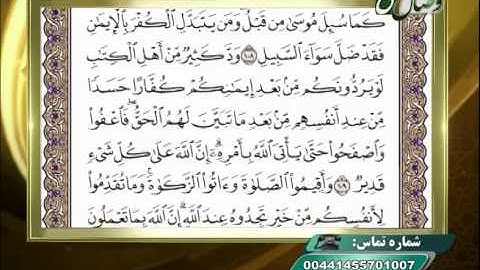 كَمَا سُئِلَ مُوسَىٰ مِن قَبْلُ وَمَن يَتَبَدَّلِ ٱلْكُفْرَ بِٱلْإِيمَٰنِ
فَقَدْ ضَلَّ سَوَآءَ ٱلسَّبِيلِ ١٠٨ وَدَّ كَثِيرٌ مِّنْ أَهْلِ ٱلْكِتَٰبِ
لَوْ يَرُدُّونَكُم مِّنۢ بَعْدِ إِيمَٰنِكُمْ كُفَّارًا حَسَدًا
مِّنْ عِندِ أَنفُسِهِم مِّنۢ بَعْدِ مَا تَبَيَّنَ لَهُمُ ٱلْحَقُّ ۖ فَٱعْفُوا۟
وَٱصْفَحُوا۟ حَتَّىٰ يَأْتِىَ ٱللَّهُ بِأَمْرِهِۦٓ ۗ إِنَّ ٱللَّهَ عَلَىٰ كُلِّ شَىْءٍ
قَدِيرٌ ١٠٩ وَأَقِيمُوا۟ ٱلصَّلَوٰةَ وَءَاتُوا۟ ٱلزَّكَوٰةَ ۚ وَمَا تُقَدِّمُوا۟
لِأَنفُسِكُم مِّنْ خَيْرٍ تَجِدُوهُ عِندَ ٱللَّهِ ۗ إِنَّ ٱللَّهَ بِمَا تَعْمَلُونَ
شماره تماس:
00441455701007